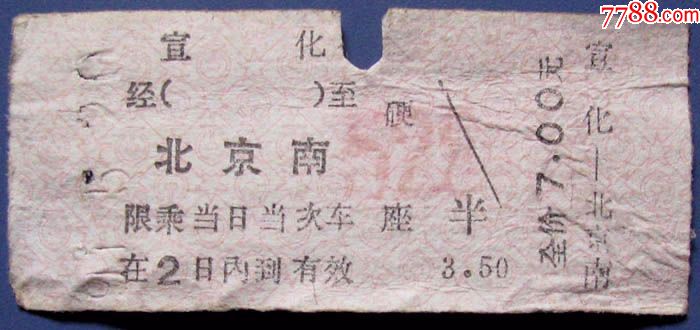 7788.com
宣 化
经( )至
北京南
硬座
限乘当日当次车
半
在2日内到有效
3.50
全价7.00元
宣化—北京南